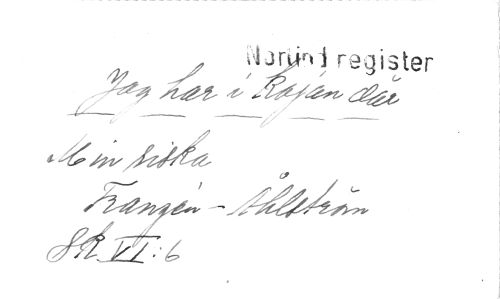 Norlind register
Jag har i Kajan där
Min siska
Franzén - Åhlström
SK VI:6